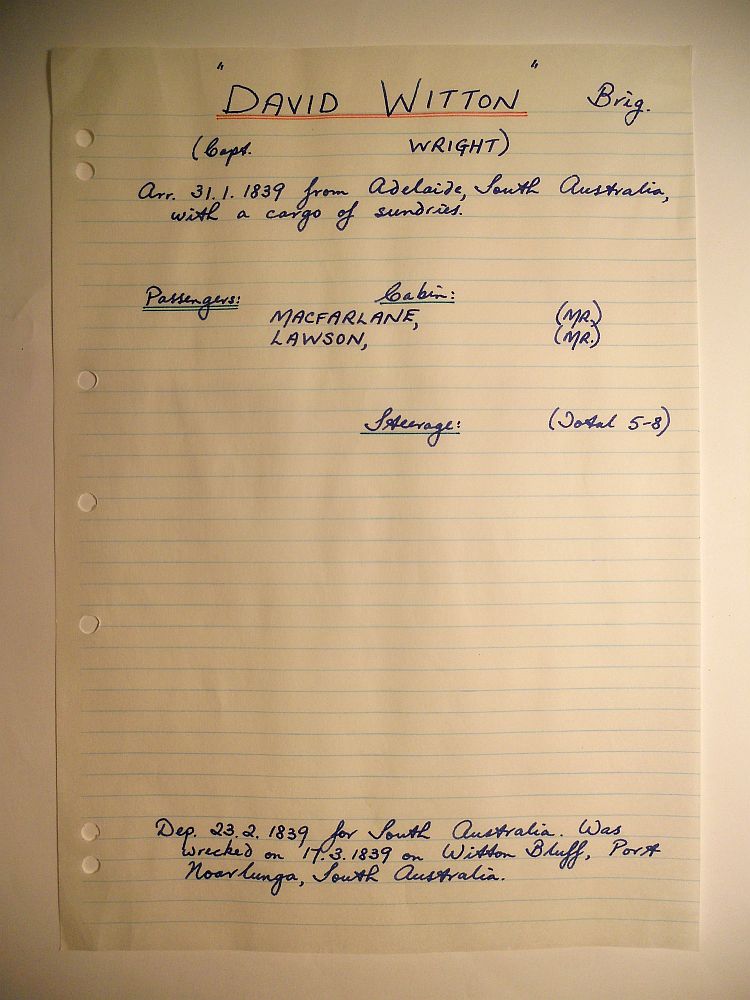 "DAVID WITTON" Brig.
(Capt. WRIGHT)
Arr. 31.1.1839 from Adelaide, South Australia,
with a cargo of sundries.
Passengers: Cabin:
MACFARLANE, (MR.)
LAWSON, (MR.)
Steerage: (Total 5-8)
Dep. 23.2.1839 for South Australia. Was
wrecked on 17.3.1839 on Witton Bluff, Port
Noarlunga, South Australia.